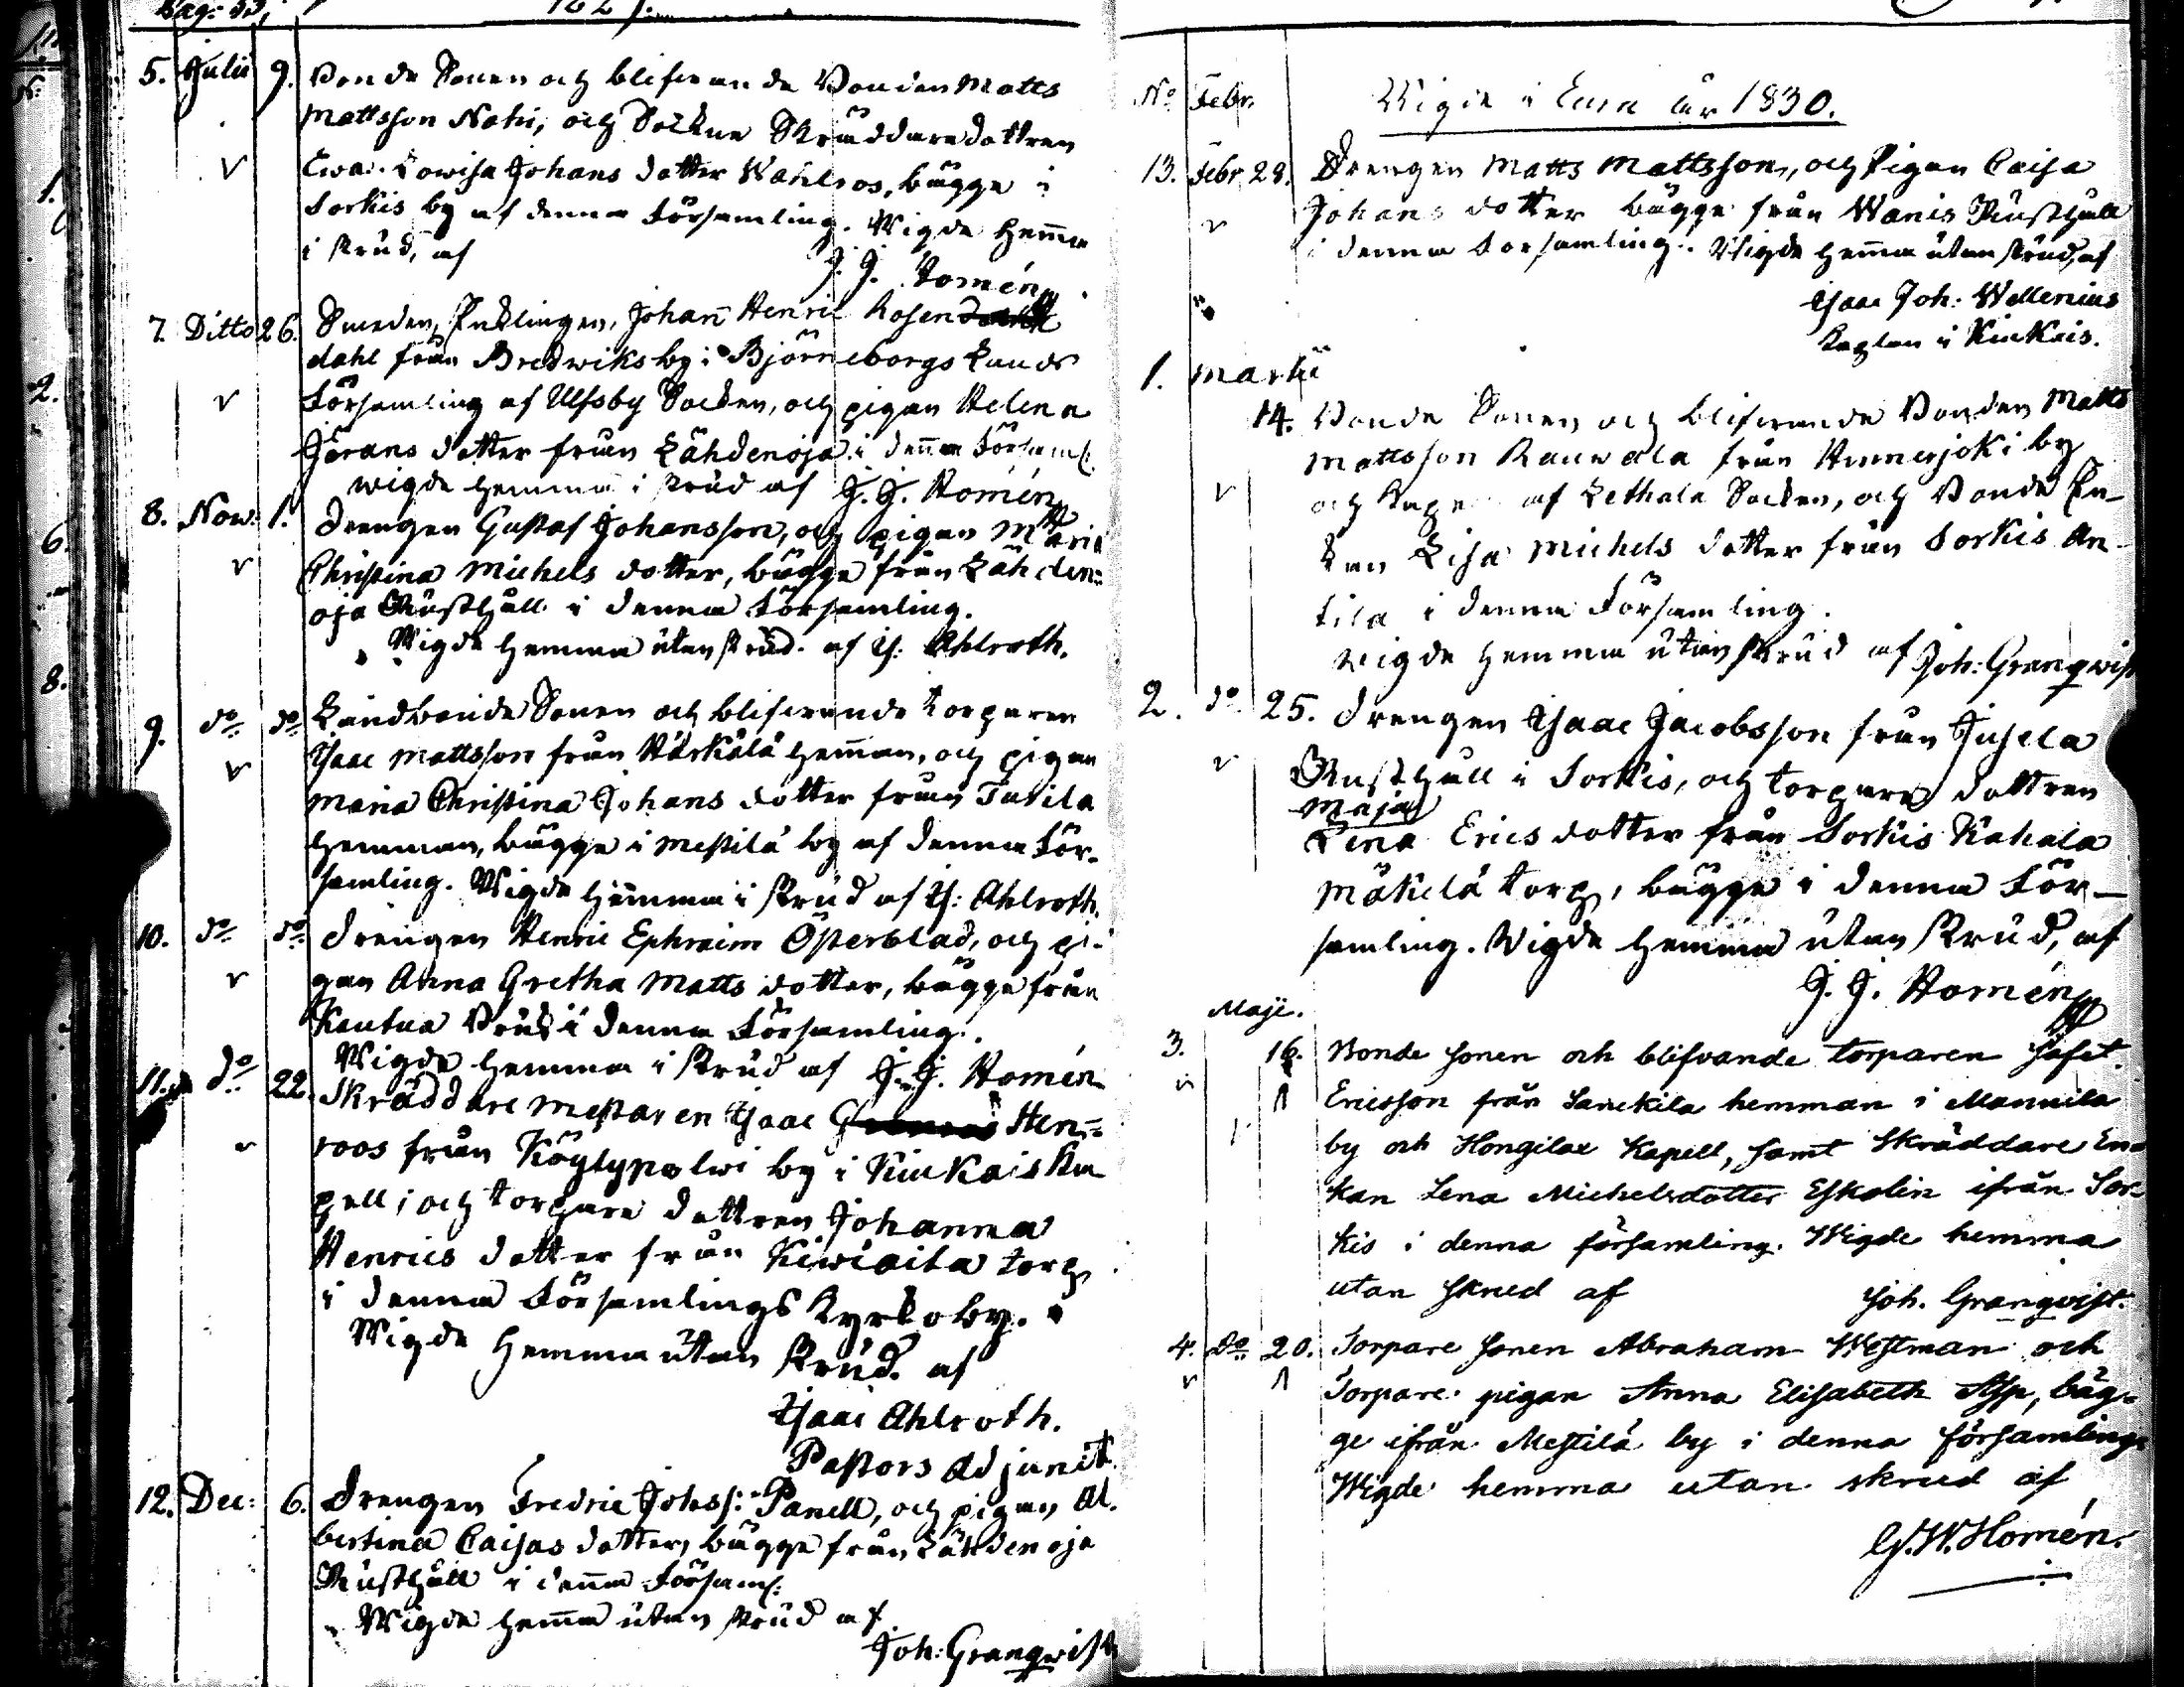 Pag: 53.
5. Julii 9. Bonde Sonen och blifvande Bonden Matts
Mattsson Nohi, och Sockne Skräddaredottren
Ewa Lowisa Johans dotter Wahlros, bägge i
Sorkis by af denna Församling. Wigde hemma
i skrud, af
J. J. Homén
7. Ditto 26. Smeden, Enklingen, Johan Henric Rosen
dahl från Bredwiks by i Björneborgs Lands
Församling af Ulfsby Socken, och pigan Helena
Görans dotter från Lähdenoja i denna Församl.
wigde hemma i skrud af J. J. Homén
8. Now: 1. Drengen Gustaf Johansson, och pigan Maria
Christina Michels dotter, bägge från Lähden=
oja Rusthåll i denna Församling.
Wigde hemma utan skrud. af Is: Ahlroth.
9. do do Landbonde Sonen och blifvande torparen
Isaac Mattsson från Härkälä heman, och pigan
Maria Christina Johans dotter från Tavila
hemman, bägge i Mestilä by af denna För-
samling. Wigde hemma i Skrud af Is: Ahlroth.
10. do do Drengen Henric Ephraim Österblad, och pi-
gan Anna Gretha Matts dotter, bägge från
Kautua Bruk i denna Församling.
Wigde hemma i Skrud af J. J. Homén
11. do 22. Skräddare mestaren Isaac Hen=
roos från Köylypolwi by i Kiukais Ka
pell; och torpare dottren Johanna
Henrics dotter från Kiwiaita torp
i denna Församlings Kyrkoby.
Wigde hemma utan Skrud. af
Isaac Ahlroth.
Pastors Adjunct.
12. Dec: 6. Drengen Fredric Johss: Panell, och pigan Al-
bertina Caisas dotter, bägge från Lähdenoja
Rusthåll i denna Församl:
Wigde hemma utan skrud af
Joh: Granqwist
No Febr. Wigde i Eura år 1830.
13. Febr. 28. Drengen Matts Mattsson, och Pigan Caisa
Johans dotter bägge från Wanis Rusthåll
i denna Församling. Wigde hemma utan skrud, af
Isaac Joh: Wellenius
Kaplan i Kiukais.
1. Martii
14. Bonde Sonen och blifvande Bonden Matts
Mattsson Rauwola från Hinnerjoki by
och Kapell af Lethala Socken, och Bonde En-
kan Lisa Michels dotter från Sorkis An-
tila i denna Församling.
Wigde hemma utan skrud af Joh: Granqwist
2. do 25. Drengen Isaac Jacobsson från Jusela
Rusthåll i Sorkis, och torpare dottren
Maja
Lena Erics dotter från Sorkis Kahala
Mäkelä torp, bägge i denna För-
samling. Wigde hemma utan Skrud, af
J. J. Homén
Maji.
3. 16. Bonde sonen och blifvande torparen Jafet
Ericsson från Sanckila hemman i Mannila
by och Hongilax Kapell, samt Skräddare En=
kan Lena Michelsdotter Eskolin ifrån Sor
kis i denna församling. Wigde hemma
utan skrud af Joh. Granqvist.
4. Do 20. Torpare sonen Abraham Westman och
Torpare pigan Anna Elisabeth Asp, bäg=
ge ifrån Mestilä by i denna församling.
Wigde hemma utan skrud af
G. W. Homén.